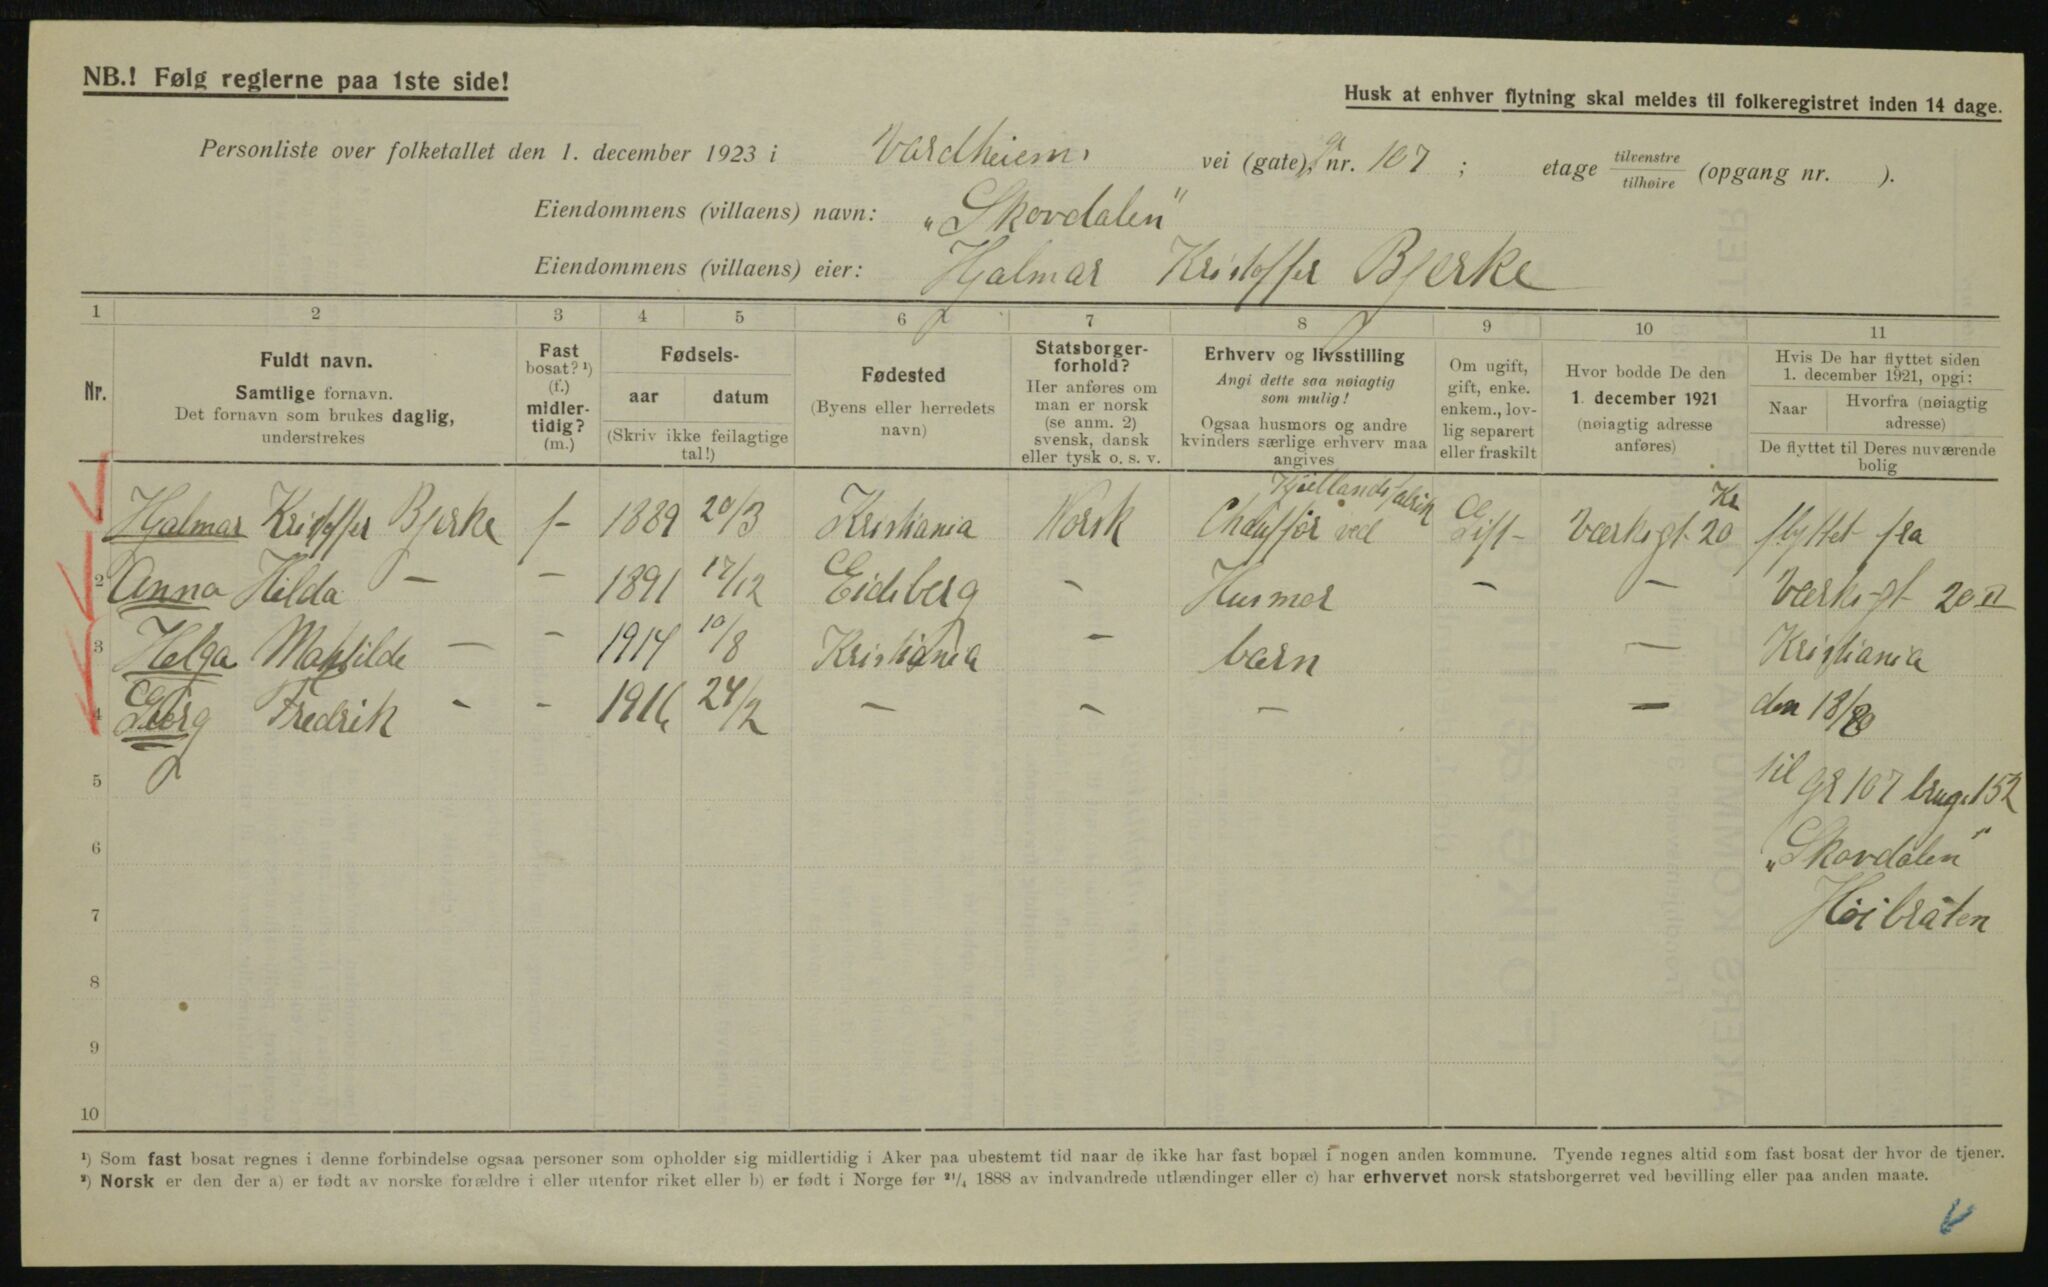 NB.! Følg reglerne paa 1ste side!
Husk at enhver flytning skal meldes til folkeregistret inden 14 dage.
Personliste over folketallet den 1. december 1923 i Vardheiem, vei (gate), g nr. 107 ; etage tilvenstre / tilhøire (opgang nr. ).
Eiendommens (villaens) navn: „Skovdalen"
Eiendommens (villaens) eier: Hjalmar Kristoffer Bjerke
1 2 3 4 5 6 7 8 9 10 11
Nr.
Fuldt navn.
Samtlige fornavn.
Det fornavn som brukes daglig,
understrekes
Fast
bosat? ¹)
(f.)
midler-
tidig?
(m.)
Fødsels-
aar datum
(Skriv ikke feilagtige
tal!)
Fødested
(Byens eller herredets
navn)
Statsborger-
forhold?
Her anføres om
man er norsk
(se anm. 2)
svensk, dansk
eller tysk o. s. v.
Erhverv og livsstilling
Angi dette saa nøiagtig
som mulig!
Ogsaa husmors og andre
kvinders særlige erhverv maa
angives
Om ugift,
gift, enke.
enkem., lov-
lig separert
eller fraskilt
Hvor bodde De den
1. december 1921
(nøiagtig adresse
anføres)
Hvis De har flyttet siden
1. december 1921, opgi:
Naar Hvorfra (nøiagtig
adresse)
De flyttet til Deres nuværende
bolig
Kjellands fabrik Kr
1 Hjalmar Kristoffer Bjerke f- 1889 20/3 Kristiania Norsk Chauffør ved Gift - Værksgt. 20 flyttet fra
2 Anna Hilda — — 1891 17/12 Eidsberg - Husmor - — Værksgt 20 II
3 Helga Mathilde — — 1914 10/8 Kristiania - barn — Kristiania
4 Georg Fredrik - - 1916 24/2 — - — — den 18/
5 til gr 107 brugs 152
6 „Skovdalen"
7 Høibråten
8
9
10
¹) Som fast bosat regnes i denne forbindelse ogsaa personer som opholder sig midlertidig i Aker paa ubestemt tid naar de ikke har fast bopæl i nogen anden kommune. Tyende regnes altid som fast bosat der hvor de tjener.
²) Norsk er den der a) er født av norske forældre i eller utenfor riket eller b) er født i Norge før ²¹/₄ 1888 av indvandrede utlændinger eller c) har erhvervet norsk statsborgerret ved bevilling eller paa anden maate.